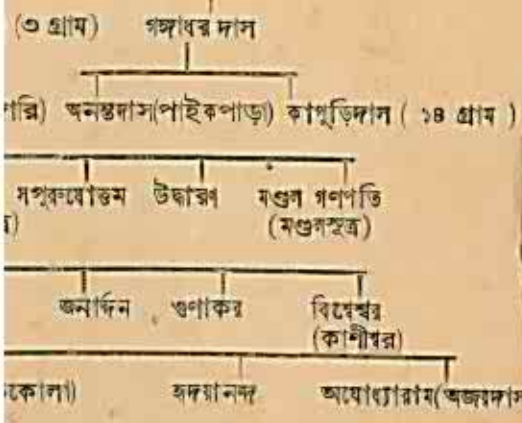 (৩ গ্রাম) গঙ্গাধর দাস
অনন্তদাস(পাইকপাড়া) কাপুড়িদাস ( ১৪ গ্রাম )
উদ্ধারণ মণ্ডল গণপতি
(মণ্ডলসূত্র)
জনার্দ্দন গুণাকর বিশ্বেশ্বর
(কাশীশ্বর)
হৃদয়ানন্দ অযোধ্যারাম(অজয়দাস